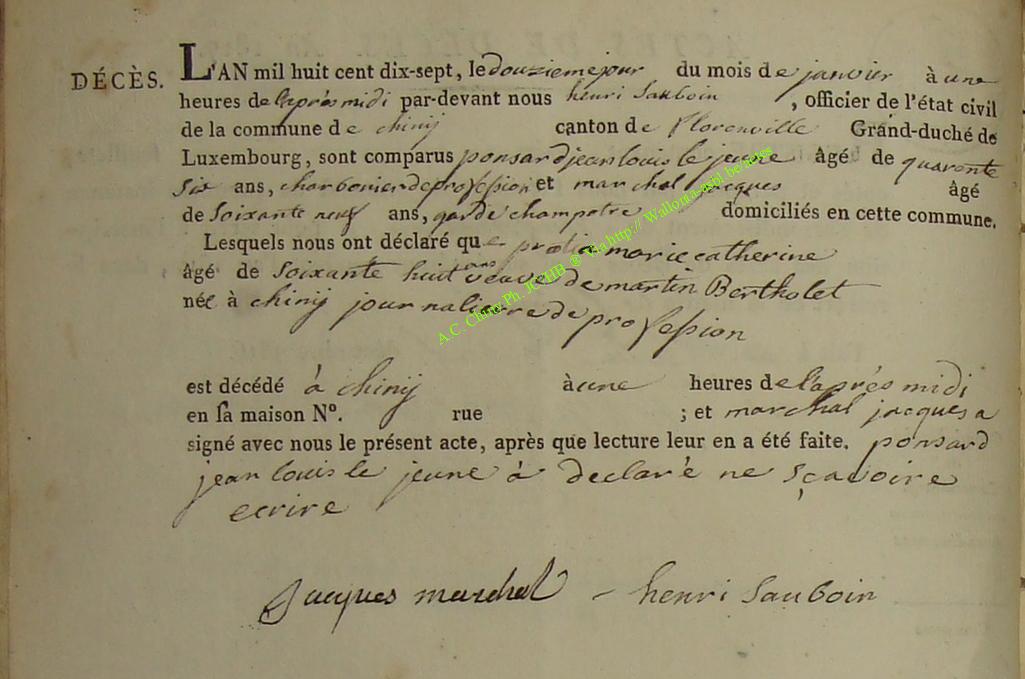 DÉCÈS.
L'AN mil huit cent dix-sept, le douzieme jour du mois de janvier à une
heures de laprès midi par-devant nous henri Sauboin , officier de l'état civil
de la commune de chinij canton de florenville Grand-duché de
Luxembourg, sont comparus ponsard jean louis le jeune âgé de quarente
Six ans, charbonier de profession et marchal jacques âgé
de Soixante neuf ans, garde champetre domiciliés en cette commune.
Lesquels nous ont déclaré que marie catherine
âgé de Soixante huit ans veuve de martin Bertholet
née à chinij journaliere de profession
est décédé à chinij à une heures de l'aprés midi
en sa maison N°. rue ; et marchal jacques a
signé avec nous le présent acte, après que lecture leur en a été faite. ponsard
jean louis le jeune à declaré ne sçavoire
ecrire
Jacques marchal - henri Sauboin
A.C. Chiny Ph. JCHB @ Via http:// Wallonia-asbl.be/actes